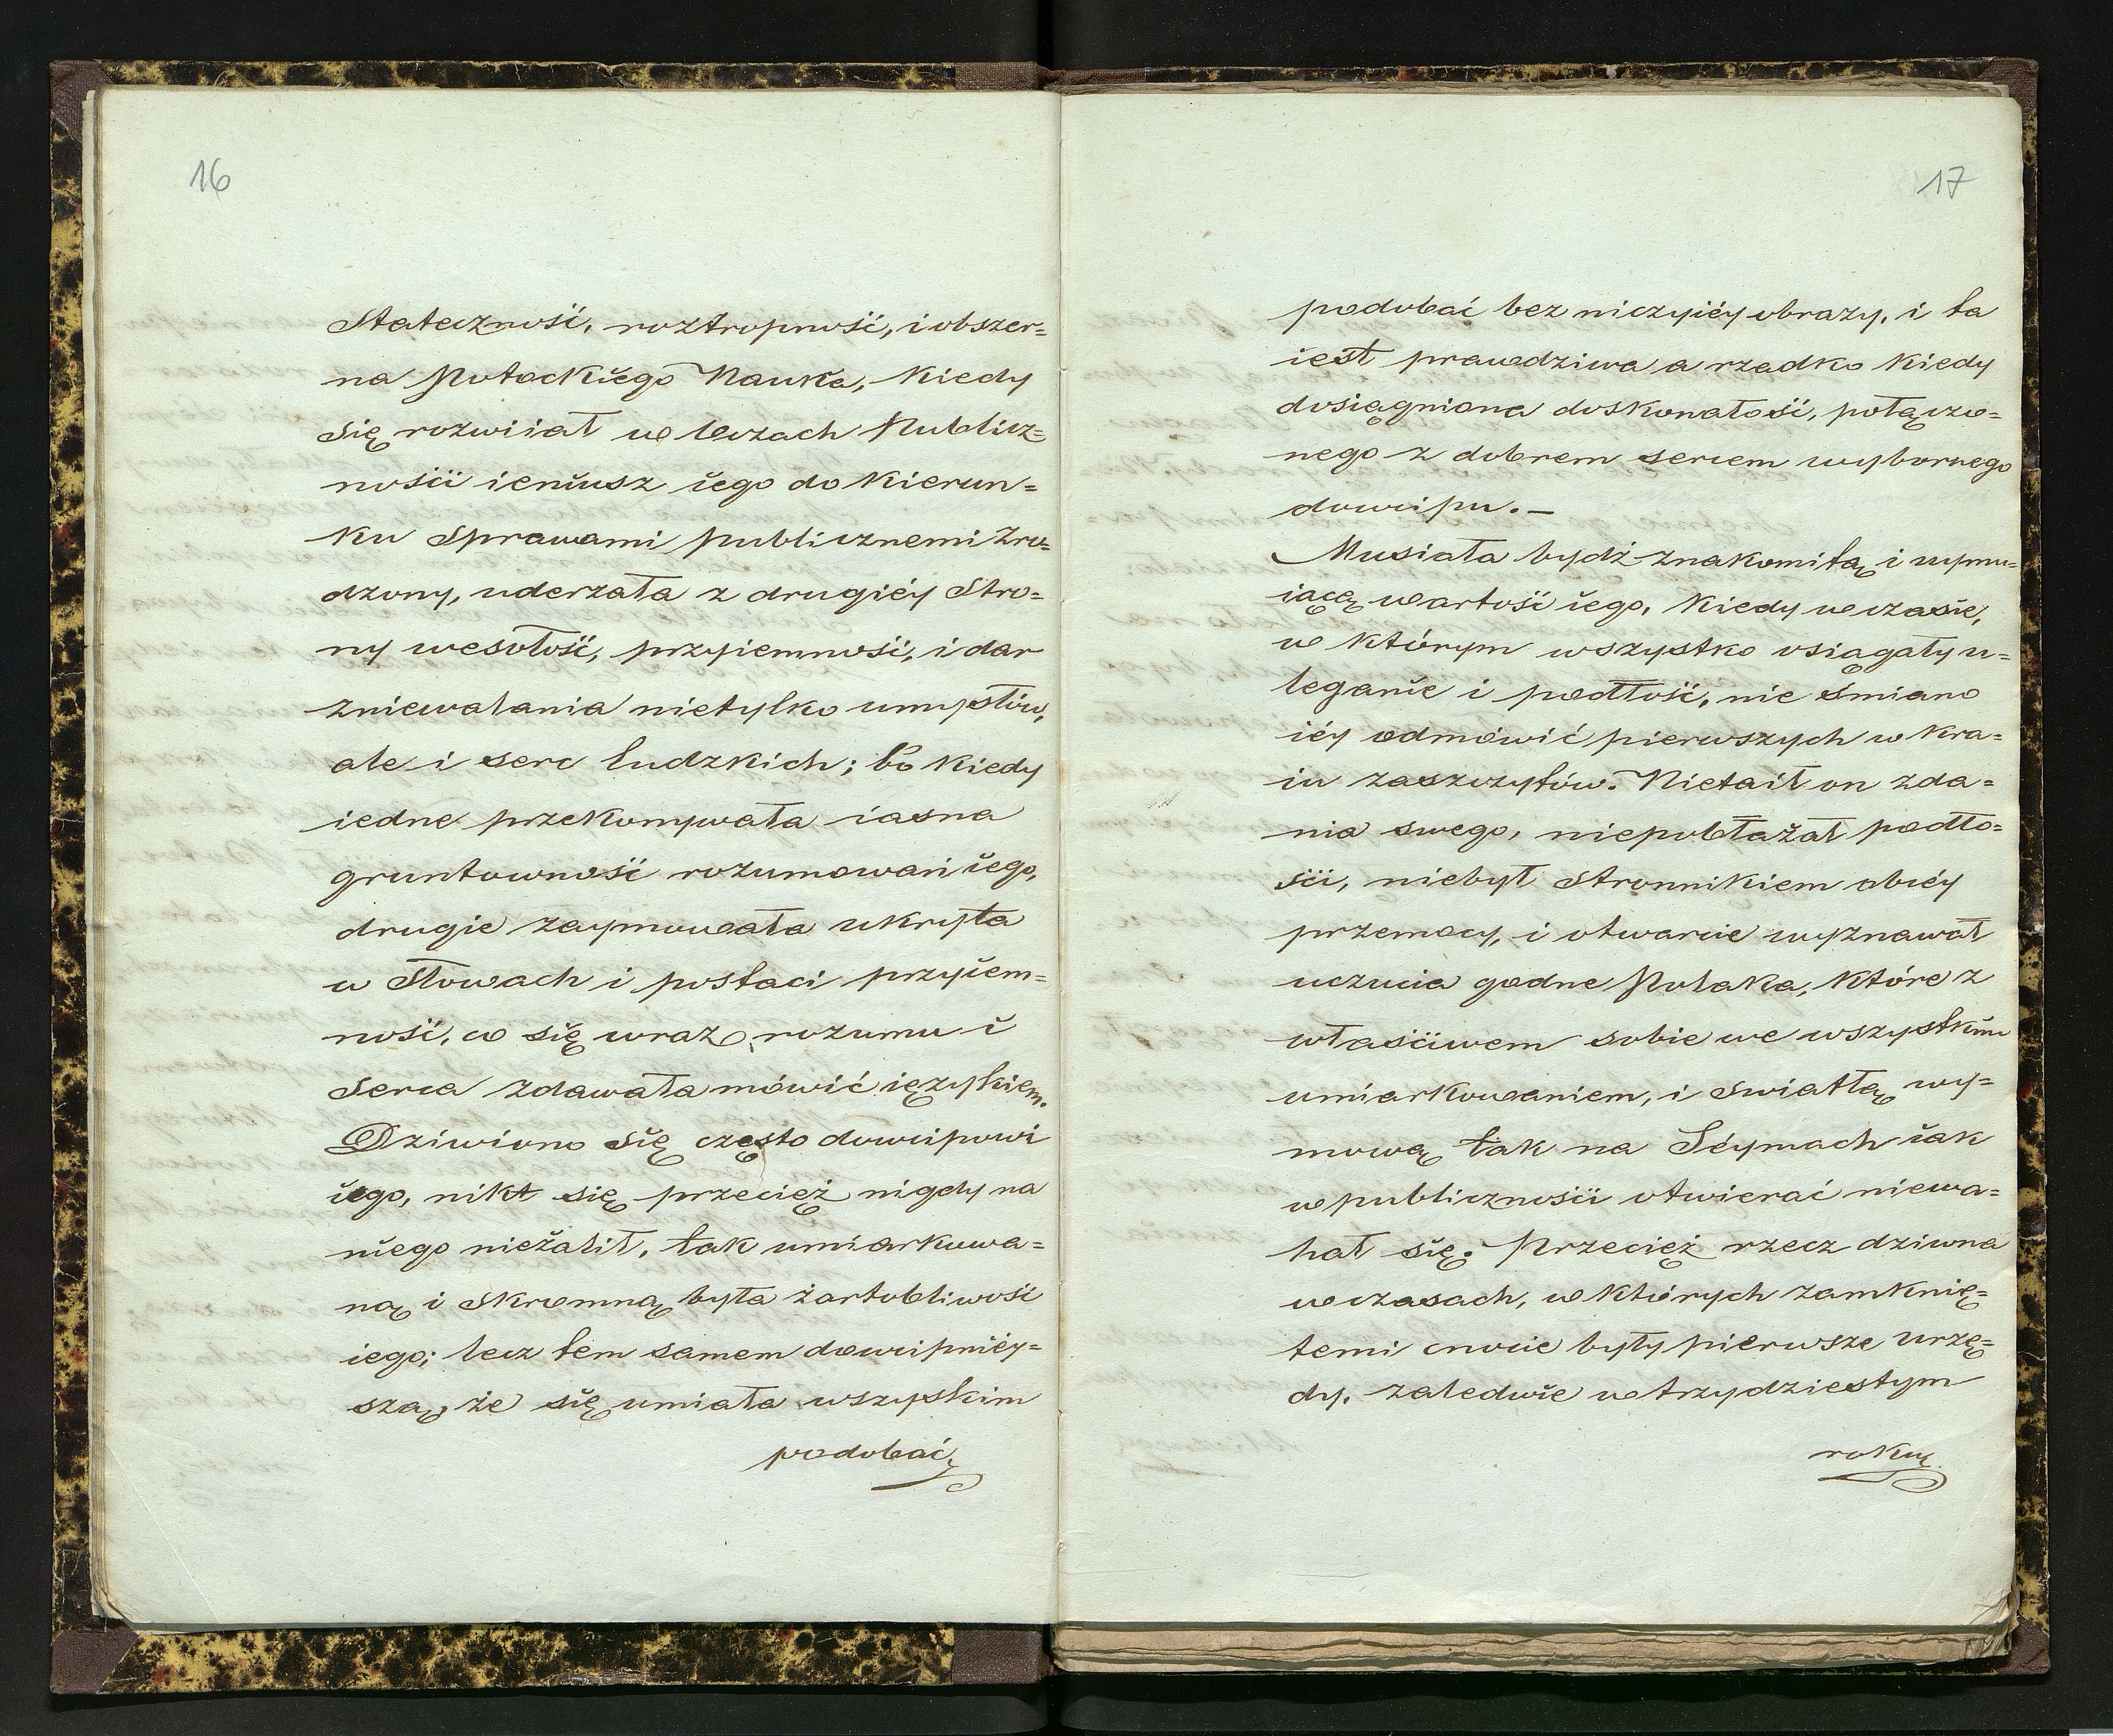 16
Stateczność, roztropność, i obszer=
na Potockiego Nauka, Kiedy
się rozwiiał w Oczach Publicz=
ności ieniusz iego do Kierun=
ku Sprawami publicznemi Zro=
dzony, uderzała z drugiéy Stro=
ny wesołość, przyiemność, i dar
zniewalania nietylko umysłów,
ale i serc ludzkich; bo Kiedy
iedne przekonywała iasna
gruntowność rozumowań iego,
drugie zaymowała ukryta
w Słowach i postaci przyiem=
ność, co się wraz rozumu i
Serca zdawała mówić ięzykiem.
Dziwiono się często dowcipowi
iego, nikt się przecięż nigdy na
niego nieżalił, tak umiarkowa=
ną i Skromną była żartobliwość
iego; lecz tem samem dowcipniéy=
szą, że się umiała wszyskim
podobać
17
podobać bez niczyiéy obrazy, i ta
iest prawdziwa a rzadko kiedy
dosiągniona doskonałość, połączo=
nego z dobrem sercem wybornego
dowcipu. –
Musiała bydź znakomitą i uymu=
iącą wartość iego, Kiedy w czasie,
w którym wszystko osiągały u=
leganie i podłość, nie śmiano
iéy odmówić pierwszych w Kra=
iu zaszczytów. Nietaił on zda=
nia swego, niepobłażał podło=
ści, niebył stronnikiem obcéy
przemocy, i otwarcie wyznawał
uczucia godne Polaka, Które z
właściwem sobie we wszystkim
umiarkowaniem, i Swiatłą wy=
mową tak na Séymach iak
w publiczności otwierać niewa=
hał się. Przecięż rzecz dziwna
w czasach, w których zamknię=
temi cnocie były pierwsze urzę=
dy, zaledwie w trzydziestym
roku